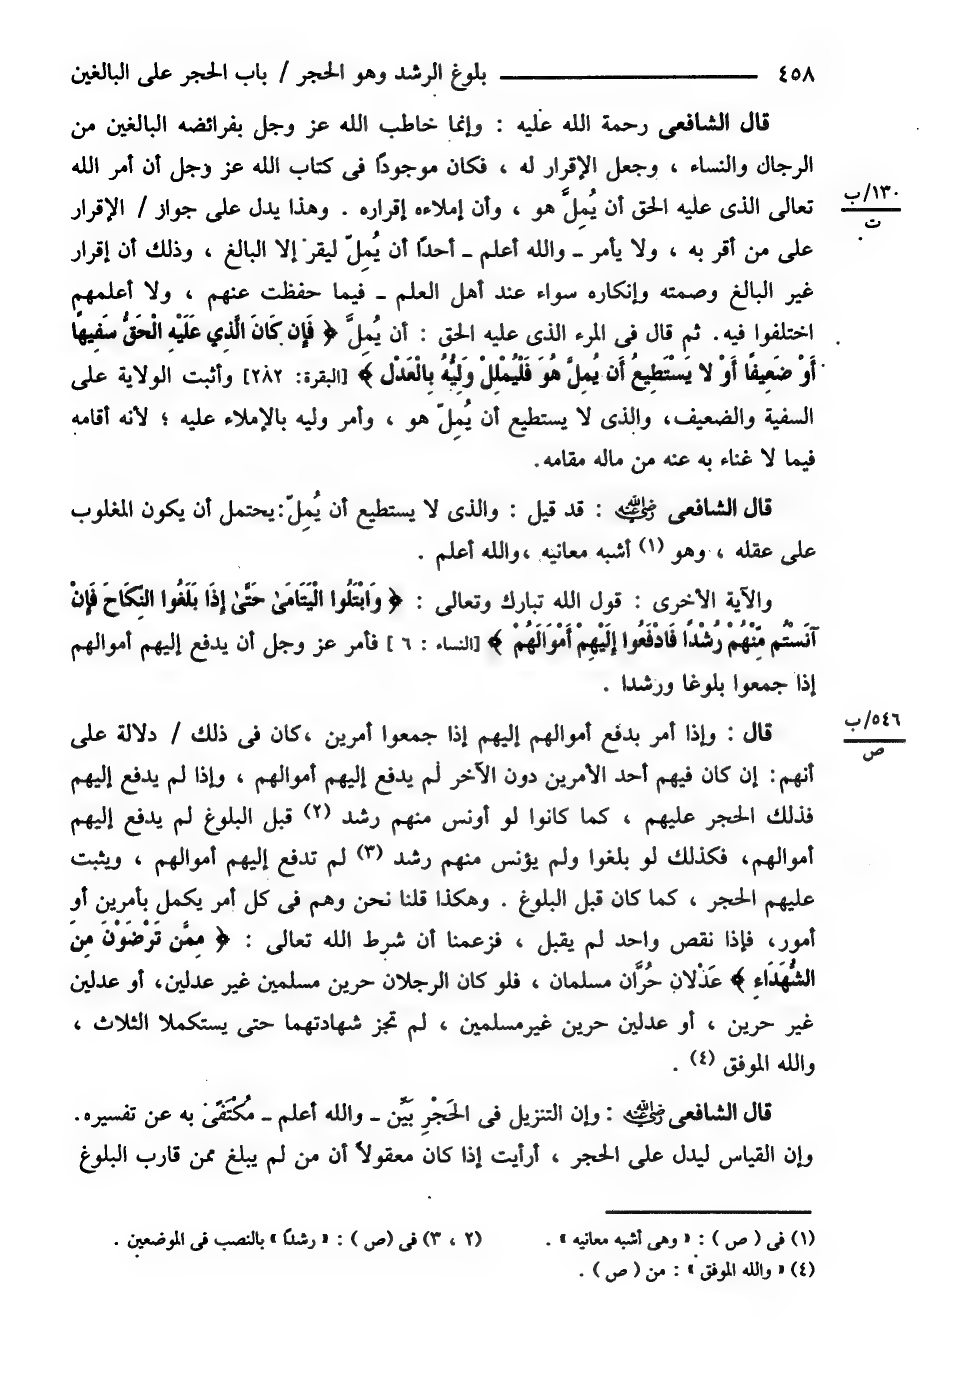 ٤٥٨ ــــــــــــــــ بلوغ الرشد وهو الحجر / باب الحجر على البالغين
قال الشافعى رحمة الله عليه : وإنما خاطب الله عز وجل بفرائضه البالغين من
الرجال والنساء ، وجعل الإقرار له ، فكان موجودًا فى كتاب الله عز وجل أن أمر الله
١٣٠/ب
ت
تعالى الذى عليه الحق أن يُمِلَّ هو ، وأن إملاءه إقراره . وهذا يدل على جواز / الإقرار
على من أقر به ، ولا يأمر ــ والله أعلم ــ أحدًا أن يُمِلّ ليقر إلا البالغ ، وذلك أن إقرار
غير البالغ وصمته وإنكاره سواء عند أهل العلم ــ فيما حفظت عنهم ، ولا أعلمهم
اختلفوا فيه. ثم قال فى المرء الذى عليه الحق : أن يُمِلَّ ﴿ فَإِن كَانَ الَّذِي عَلَيْهِ الْحَقُّ سَفِيهًا
أَوْ ضَعِيفًا أَوْ لا يَسْتَطِيعُ أَن يُمِلَّ هُوَ فَلْيُمْلِلْ وَلِيُّهُ بِالْعَدْلِ ﴾ [البقرة: ٢٨٢] وأثبت الولاية على
السفية والضعيف، والذى لا يستطيع أن يُمِلّ هو ، وأمر وليه بالإملاء عليه ؛ لأنه أقامه
فيما لا غناء به عنه من ماله مقامه.
قال الشافعى رضي الله عنه : قد قيل : والذى لا يستطيع أن يُمِلّ:يحتمل أن يكون المغلوب
على عقله ، وهو (١) أشبه معانيه ،والله أعلم .
والآية الأخرى : قول الله تبارك وتعالى : ﴿ وَابْتَلُوا الْيَتَامَىٰ حَتَّىٰ إِذَا بَلَغُوا النِّكَاحَ فَإِنْ
آنَسْتُم مِّنْهُمْ رُشْدًا فَادْفَعُوا إِلَيْهِمْ أَمْوَالَهُمْ ﴾ [النساء : ٦ ] فأمر عز وجل أن يدفع إليهم أموالهم
إذا جمعوا بلوغا ورشدا .
٥٤٦/ب
ص
قال : وإذا أمر بدفع أموالهم إليهم إذا جمعوا أمرين ،كان فى ذلك / دلالة على
أنهم: إن كان فيهم أحد الأمرين دون الآخر لم يدفع إليهم أموالهم ، وإذا لم يدفع إليهم
فذلك الحجر عليهم ، كما كانوا لو أونس منهم رشد (٢) قبل البلوغ لم يدفع إليهم
أموالهم، فكذلك لو بلغوا ولم يؤنس منهم رشد (٣) لم تدفع إليهم أموالهم ، ويثبت
عليهم الحجر ، كما كان قبل البلوغ . وهكذا قلنا نحن وهم فى كل أمر يكمل بأمرين أو
أمور، فإذا نقص واحد لم يقبل ، فزعمنا أن شرط الله تعالى : ﴿ مِمَّن تَرْضَوْنَ مِنَ
الشُّهَدَاءِ ﴾ عَدْلانِ حُرَّان مسلمان ، فلو كان الرجلان حرين مسلمين غير عدلين، أو عدلين
غير حرين ، أو عدلين حرين غيرمسلمين ، لم تجز شهادتهما حتى يستكملا الثلاث ،
والله الموفق (٤) .
قال الشافعى رضي الله عنه : وإن التنزيل فى الحَجْرِ بَيِّن ــ والله أعلم ــ مُكْتَفًى به عن تفسيره.
وإن القياس ليدل على الحجر ، أرأيت إذا كان معقولاً أن من لم يبلغ ممن قارب البلوغ
(١) فى ( ص ) : « وهى أشبه معانيه » . (٢ ، ٣) فى (ص ) : « رشدًا » بالنصب فى الموضعين .
(٤) « والله الموفق » : من ( ص ) .